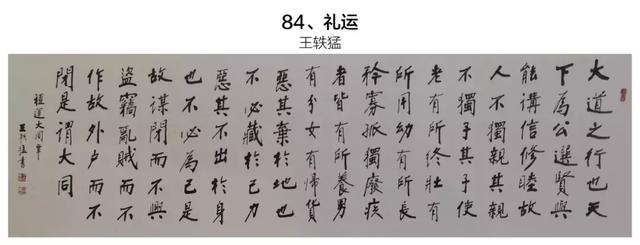 84、礼运
王轶猛
大道之行也天
下為公選賢與
能講信修睦故
人不獨親其親
不獨子其子使
老有所終壯有
所用幼有所長
矜寡孤獨廢疾
者皆有所養男
有分女有歸貨
惡其棄於地也
不必藏於己力
惡其不出於身
也不必為己是
故謀閉而不興
盜竊亂賊而不
作故外户而不
閉是謂大同
禮運大同章
王軼猛書